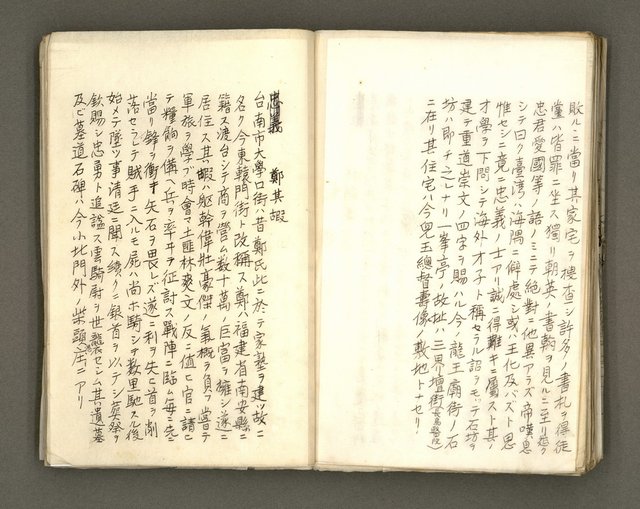 敗ルニ當リ其家宅ヲ捜查シ許多ノ書札ヲ得徒
黨ハ皆罪ニ坐ス獨リ朝英ノ書翰ヲ見ルニ至リ
忠君愛國等ノ語ノミニテ絕對ニ他異アラズ帝嘆息
シテ曰ク臺灣ハ海隅ニ僻處シ或ハ王化及バズト思
惟セシニ竟ニ忠義ノ士アリ誠ニ得難キニ屬スト其ノ
才學ヲ下問シテ海外才子ト稱セラル詔ヲ以テ石坊ヲ
建テ重道崇文ノ四字ヲ賜ハル今ノ龍王廟街ノ石
坊ハ即チ之レナリ一峯亭ノ故址ハ三界壇街
ニ在リ其住宅ハ今兒玉總督壽像ノ敷地トナセリ
忠義　鄭其嘏
台南市大學口街ハ昔鄭氏此ニ於テ家塾ヲ建ツ故ニ
名ク今東轅門街ト改稱ス鄭ハ福建省南安縣ニ
籍ス渡台シテ商ヲ營ム數十萬ノ巨富ヲ擁シ遂ニ
居住ス其嘏ハ軀幹偉壯豪傑ノ氣概ヲ負フ嘗テ
軍旅ヲ學ブ時會マ土匪林爽文ノ反ニ值ヒ官ニ請ヒ
テ糧餉ヲ備ヘ兵ヲ率ヰヲ征討ス戰陣ニ臨ム每ニ先ニ
當リ鋒ヲ衝キ矢石ヲ畏レズ遂ニ利ヲ失ヒ首ヲ削
落セラレテ賊手ニ入ルモ屍ハ尚ホ騎シテ數里馳スル後
始メテ墜ツ事清廷ニ聞ス續クニ銀首ヲ以テシ英祭ヲ
欽賜シ忠勇ト追諡ス雲騎尉ヲ世襲セシム其ノ遺墓
及ビ墓道石碑ハ今小北門外ノ柴頭庄ニアリ